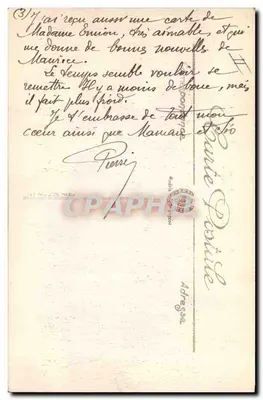 (3) J'ai reçu aussi une carte de
Madame Ennion, très aimable, et qui
me donne de bonnes nouvelles de
Maurice.
Le temps semble vouloir se
remettre. Il y a moins de boue, mais
il fait plus froid.
Je t'embrasse de tout mon
cœur ainsi que Maman
Pierre
II
Carte Postale
Adresse
CPAPHIL